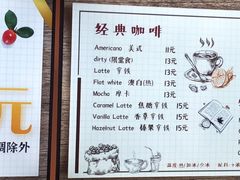 元
周除外
经典咖啡
Americano 美式 11元
dirty (限堂食) 13元
Latte 拿铁 13元
Flat white 澳白(热) 13元
Mocha 摩卡 13元
Caramel Latte 焦糖拿铁 15元
Vanilla Latte 香草拿铁 15元
Hazelnut Latte 榛果拿铁 15元